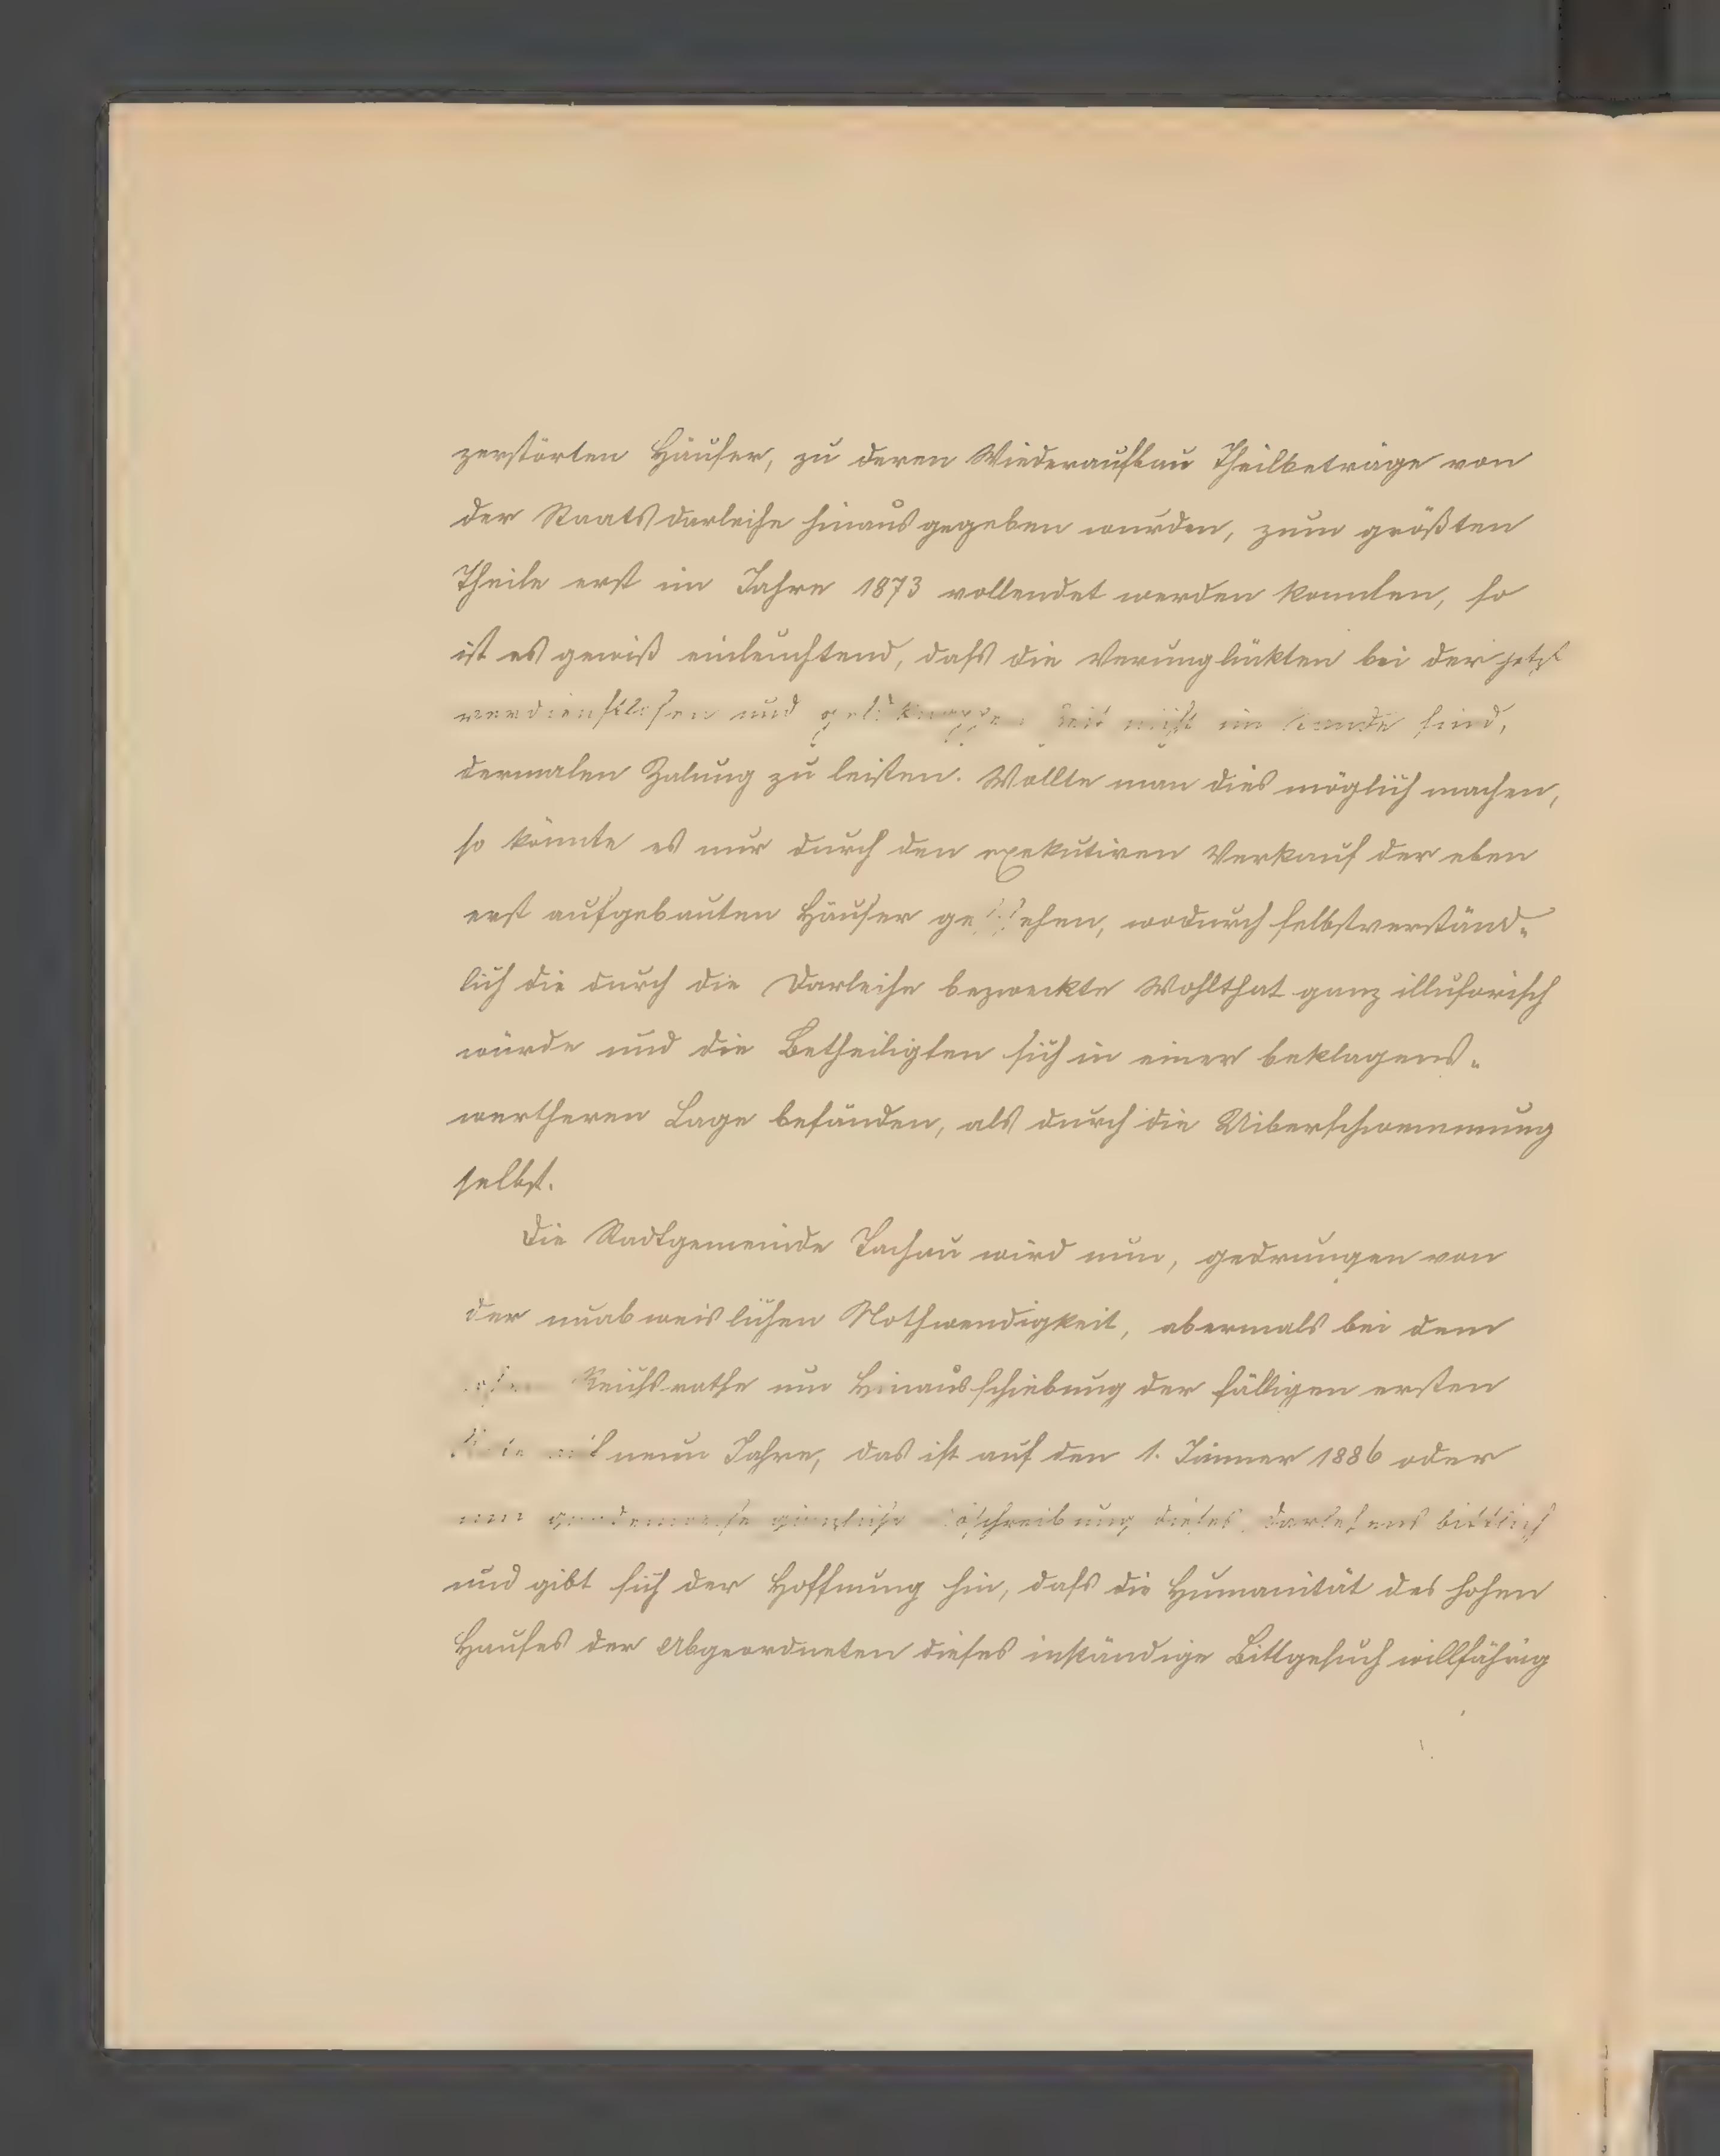 zerstörten Häuser, zu deren Wiederaufbau Theilbeträge von
der Staatsdarleihe hinausgegeben wurden, zum größten
Theile erst im Jahre 1873 vollendet werden konnten, so
ist es gewiß einleuchtend, dass die Verunglükten bei der jetzt
verdienstlosen und geldknappen Zeit nicht im Stande sind,
dermalen Zalung zu leisten. Wollte man dies möglich machen,
so könnte es nur durch den exekutiven Verkauf der eben
erst aufgebauten Häuser geschehen, wodurch selbstverständ-
lich die durch die Darleihe bezweckte Wohlthat ganz illusorisch
würde und die Betheiligten sich in einer beklagens-
wertheren Lage befänden, als durch die Uiberschwemmung
selbst.
Die Stadtgemeinde Tachau wird nun, gedrungen von
der unabweislichen Nothwendigkeit, abermals bei dem
hohen Reichsrathe um Hinausschiebung der fälligen ersten
Rate auf neun Jahre, das ist auf den 1. Jänner 1886 oder
um gnadenweise gänzliche Abschreibung dieses Darlehens bittlich
und gibt sich der Hoffnung hin, dass die Humanität des hohen
Hauses der Abgeordneten dieses inständige Bittgesuch willfährig